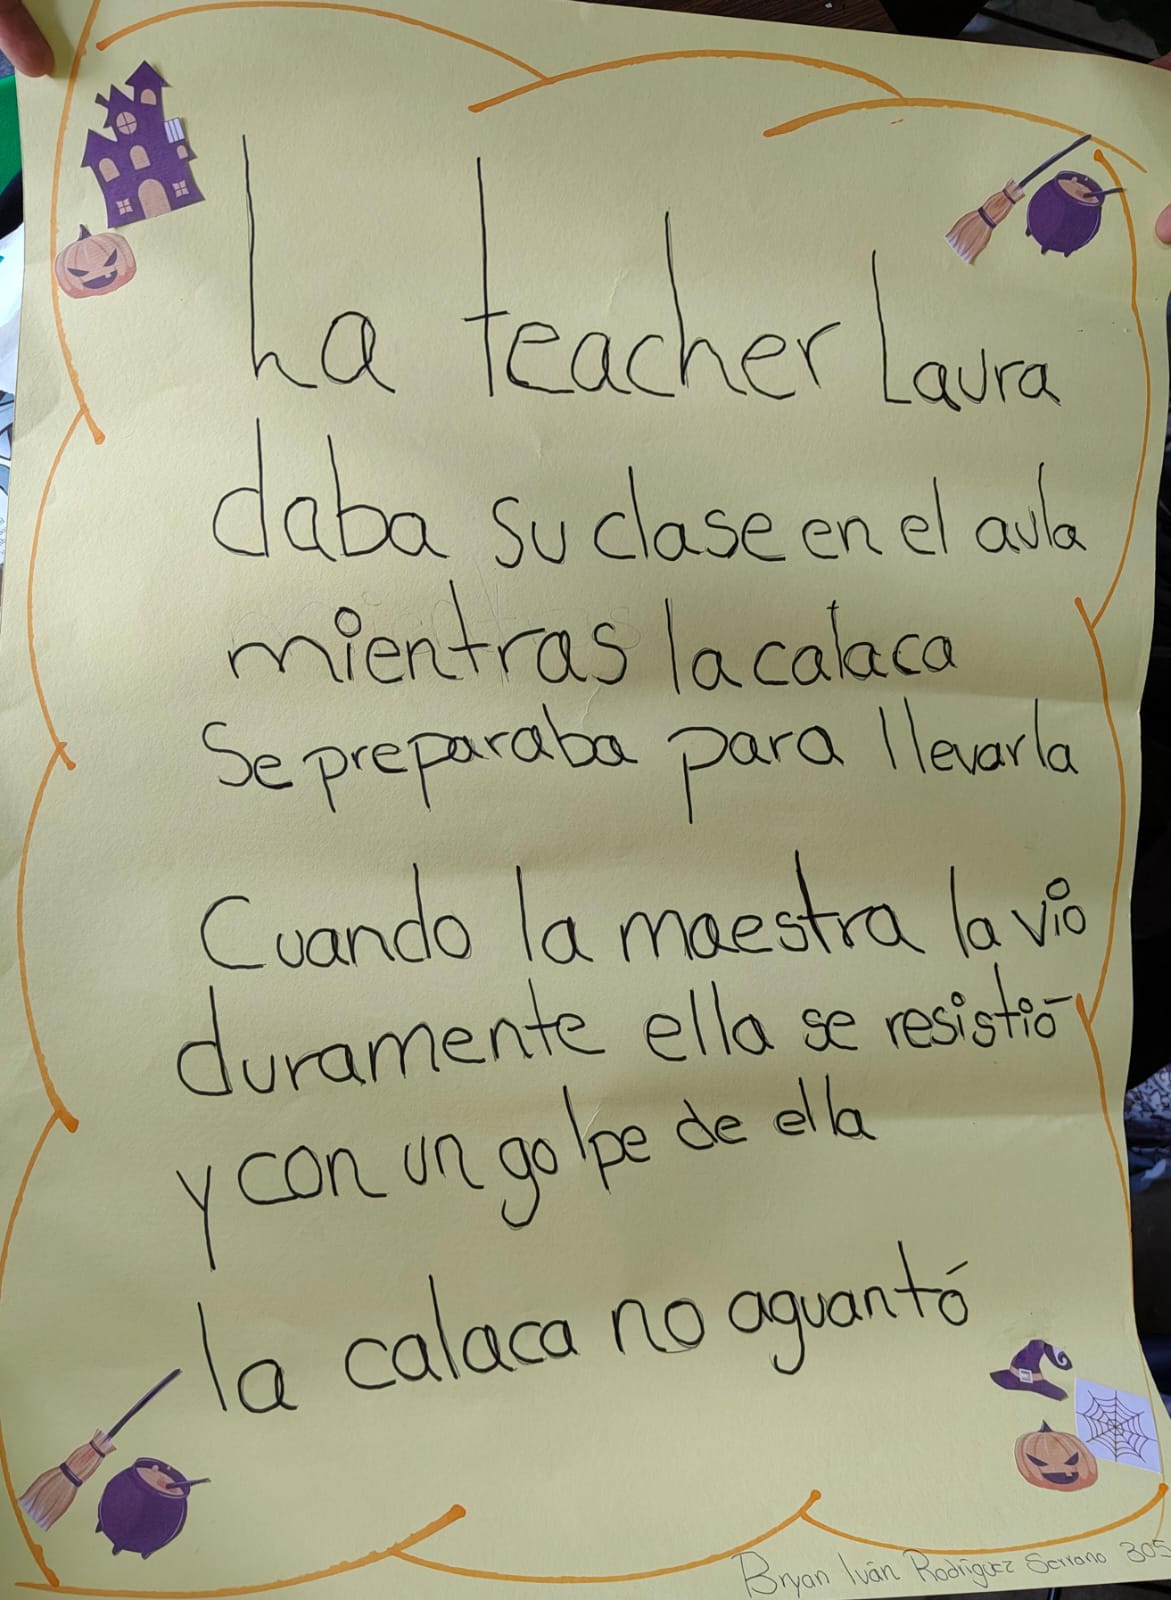 La teacher Laura
daba su clase en el aula
mientras la calaca
Se preparaba para llevarla
Cuando la maestra la vio
duramente ella se resistió
y con un golpe de ella
la calaca no aguantó
Bryan Iván Rodríguez Serrano 305